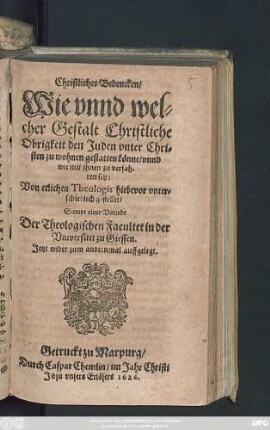 5
Christliches Bedencken/
Wie vnnd wel-
cher Gestalt Christliche
Obrigkeit den Juden vnter Chri-
sten zu wohnen gestatten könne/ vnnd
wie mit ihnen zu verfah-
ren sey:
Von etlichen Theologis hiebevor vnter-
schiedlich gestellet/
Sampt einer Vorrede
Der Theologischen Facultet in der
Vniversitet zu Giessen.
Jetzt wider zum andernmal auffgelegt.
Getruckt zu Marpurg/
Durch Caspar Chemlin/ im Jahr Christi
Jesu vnsers Erlösers 1626.